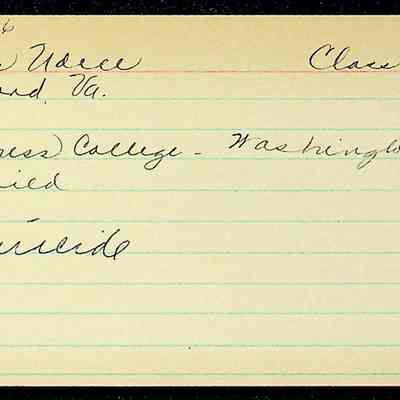 6
Class
ond, Va.
ess College - Washingto
ied
uicide